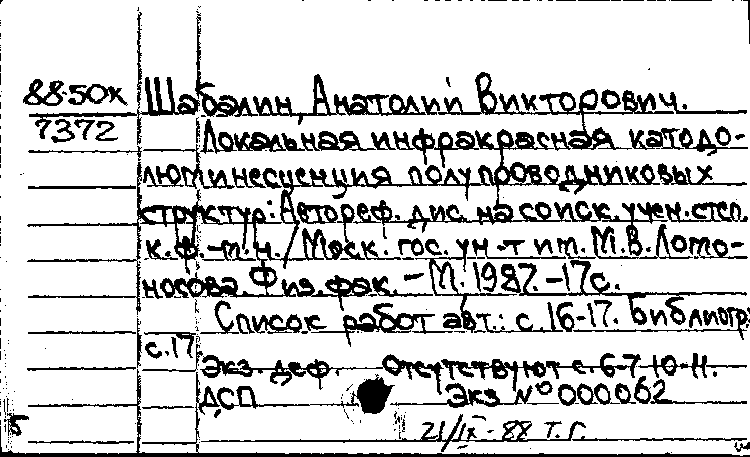 88-50к Шабалин, Анатолий Викторович.
7372 Локальная инфракрасная катодо-
люминесценция полупроводниковых
структур: Автореф. дис. на соиск. учен. степ.
к. ф.-м. н. / Моск. гос. ун-т им. М.В. Ломо-
носова. Физ. фак. - М. 1987. - 17с.
Список работ авт.: с. 16-17. Библиогр:
с. 17.
Экз. деф. Отсутствуют с. 6-7, 10-11.
ДСП Экз № 000062
5
21/IX-88 т. г.